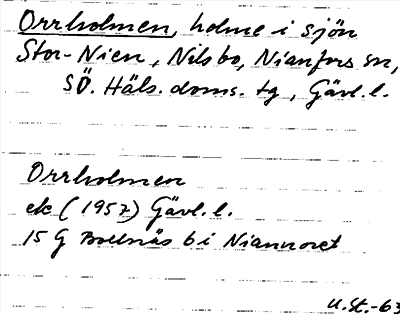 Orrholmen, holme i sjön
Stor-Nien, Nilsbo, Nianfors sn,
SÖ. Häls. doms. tg, Gävl. l.
Orrholmen
ek (1957) Gävl. l.
15 G Bollnäs 6 i Niannoret
U. St. -63